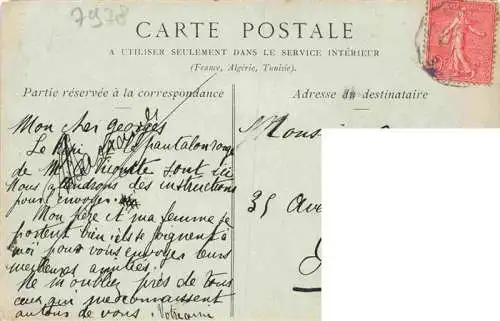 7978
CARTE POSTALE
A UTILISER SEULEMENT DANS LE SERVICE INTÉRIEUR
(France, Algérie, Tunisie).
Partie réservée à la correspondance
Adresse du destinataire
Mon cher georges
Le Képi le pantalon rouge
de Mr Vicomte sont ici
Nous attendrons des instructions
pour l'envoyer.
Mon père et ma femme se
portent bien et se joignent à
moi pour vous envoyer leurs
meilleures amitiés.
Ne m'oubliez près de tous
ceux qui me connaissent
autour de vous.
Monsieur
35 Ave